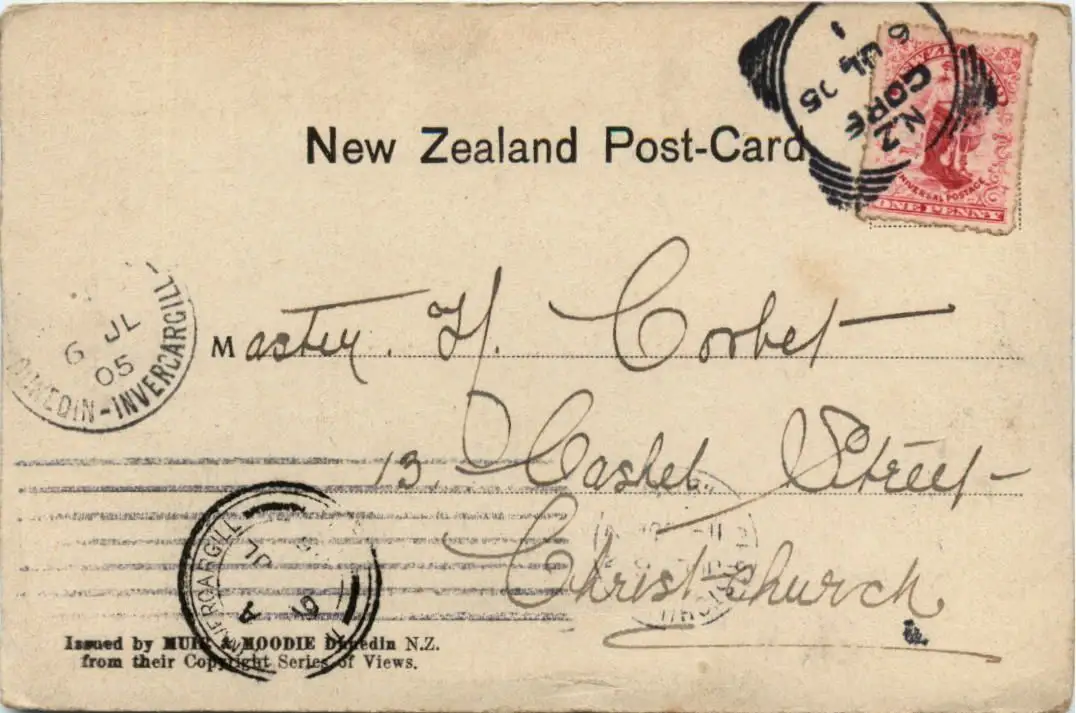 New Zealand Post-Card
N.Z
GORE
6 JL 05
1
UNIVERSAL POSTAGE
ONE PENNY
6 JL
05
DUNEDIN-INVERCARGILL
Master. H. Corbet
13. Cashel Street
Christchurch
INVERCARGILL
JL
A
Issued by MUIR & MOODIE Dunedin N.Z.
from their Copyright Series of Views.